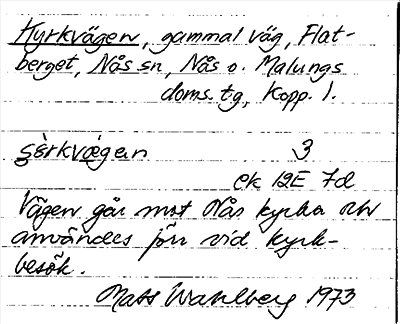 Kyrkvägen, gammal väg, Flat-
berget, Nås sn, Nås o. Malungs
doms. tg, Kopp. l.
sè̀rkvægan 3
ek 12E 7d
Vägen går mot Nås kyrka och
användes förr vid kyrk-
besök.
Mats Wahlberg 1973